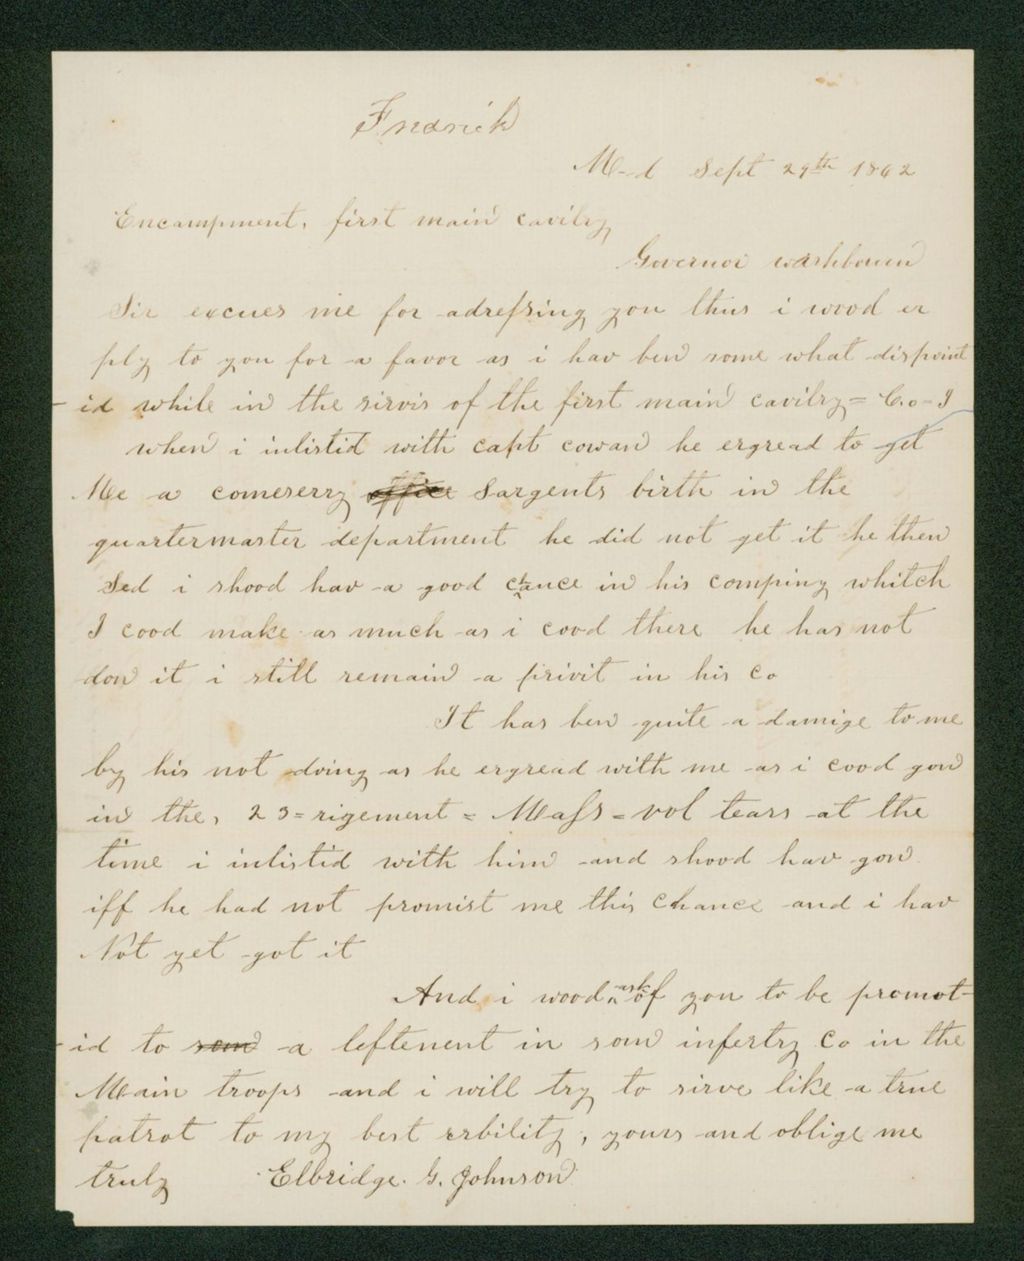 Fredrick
M-d Sept 29th 1862
Encampment, first main cavilry
Governor washbourn
Sir excues me for adressing you thus i wood er
ply to you for a favor as i hav ben some what dispoint
id while in the sirvis of the first main cavilry = Co-I
when i inlistid with capt cowan he ergread to get
Me a comeserry office Sargents birth in the
quartermaster department he did not get it he then
Sed i shood hav a good chance in his compiny whitch
I cood make as much as i cood there he has not
don it i still remain a privit in his co
It has ben quite a damige to me
by his not doing as he ergread with me as i cood gon
in the, 23 = rigement = Mass = vol tears at the
time i inlistid with him and shood hav gon
iff he had not promist me this chance and i hav
Not yet got it
And i wood ask of you to be promot-
id to som a leftenent in som infertry Co in the
Main troops and i will try to sirve like a true
patrot to my best erbility, yours and oblige me
truly Elbridge. G. Johnson